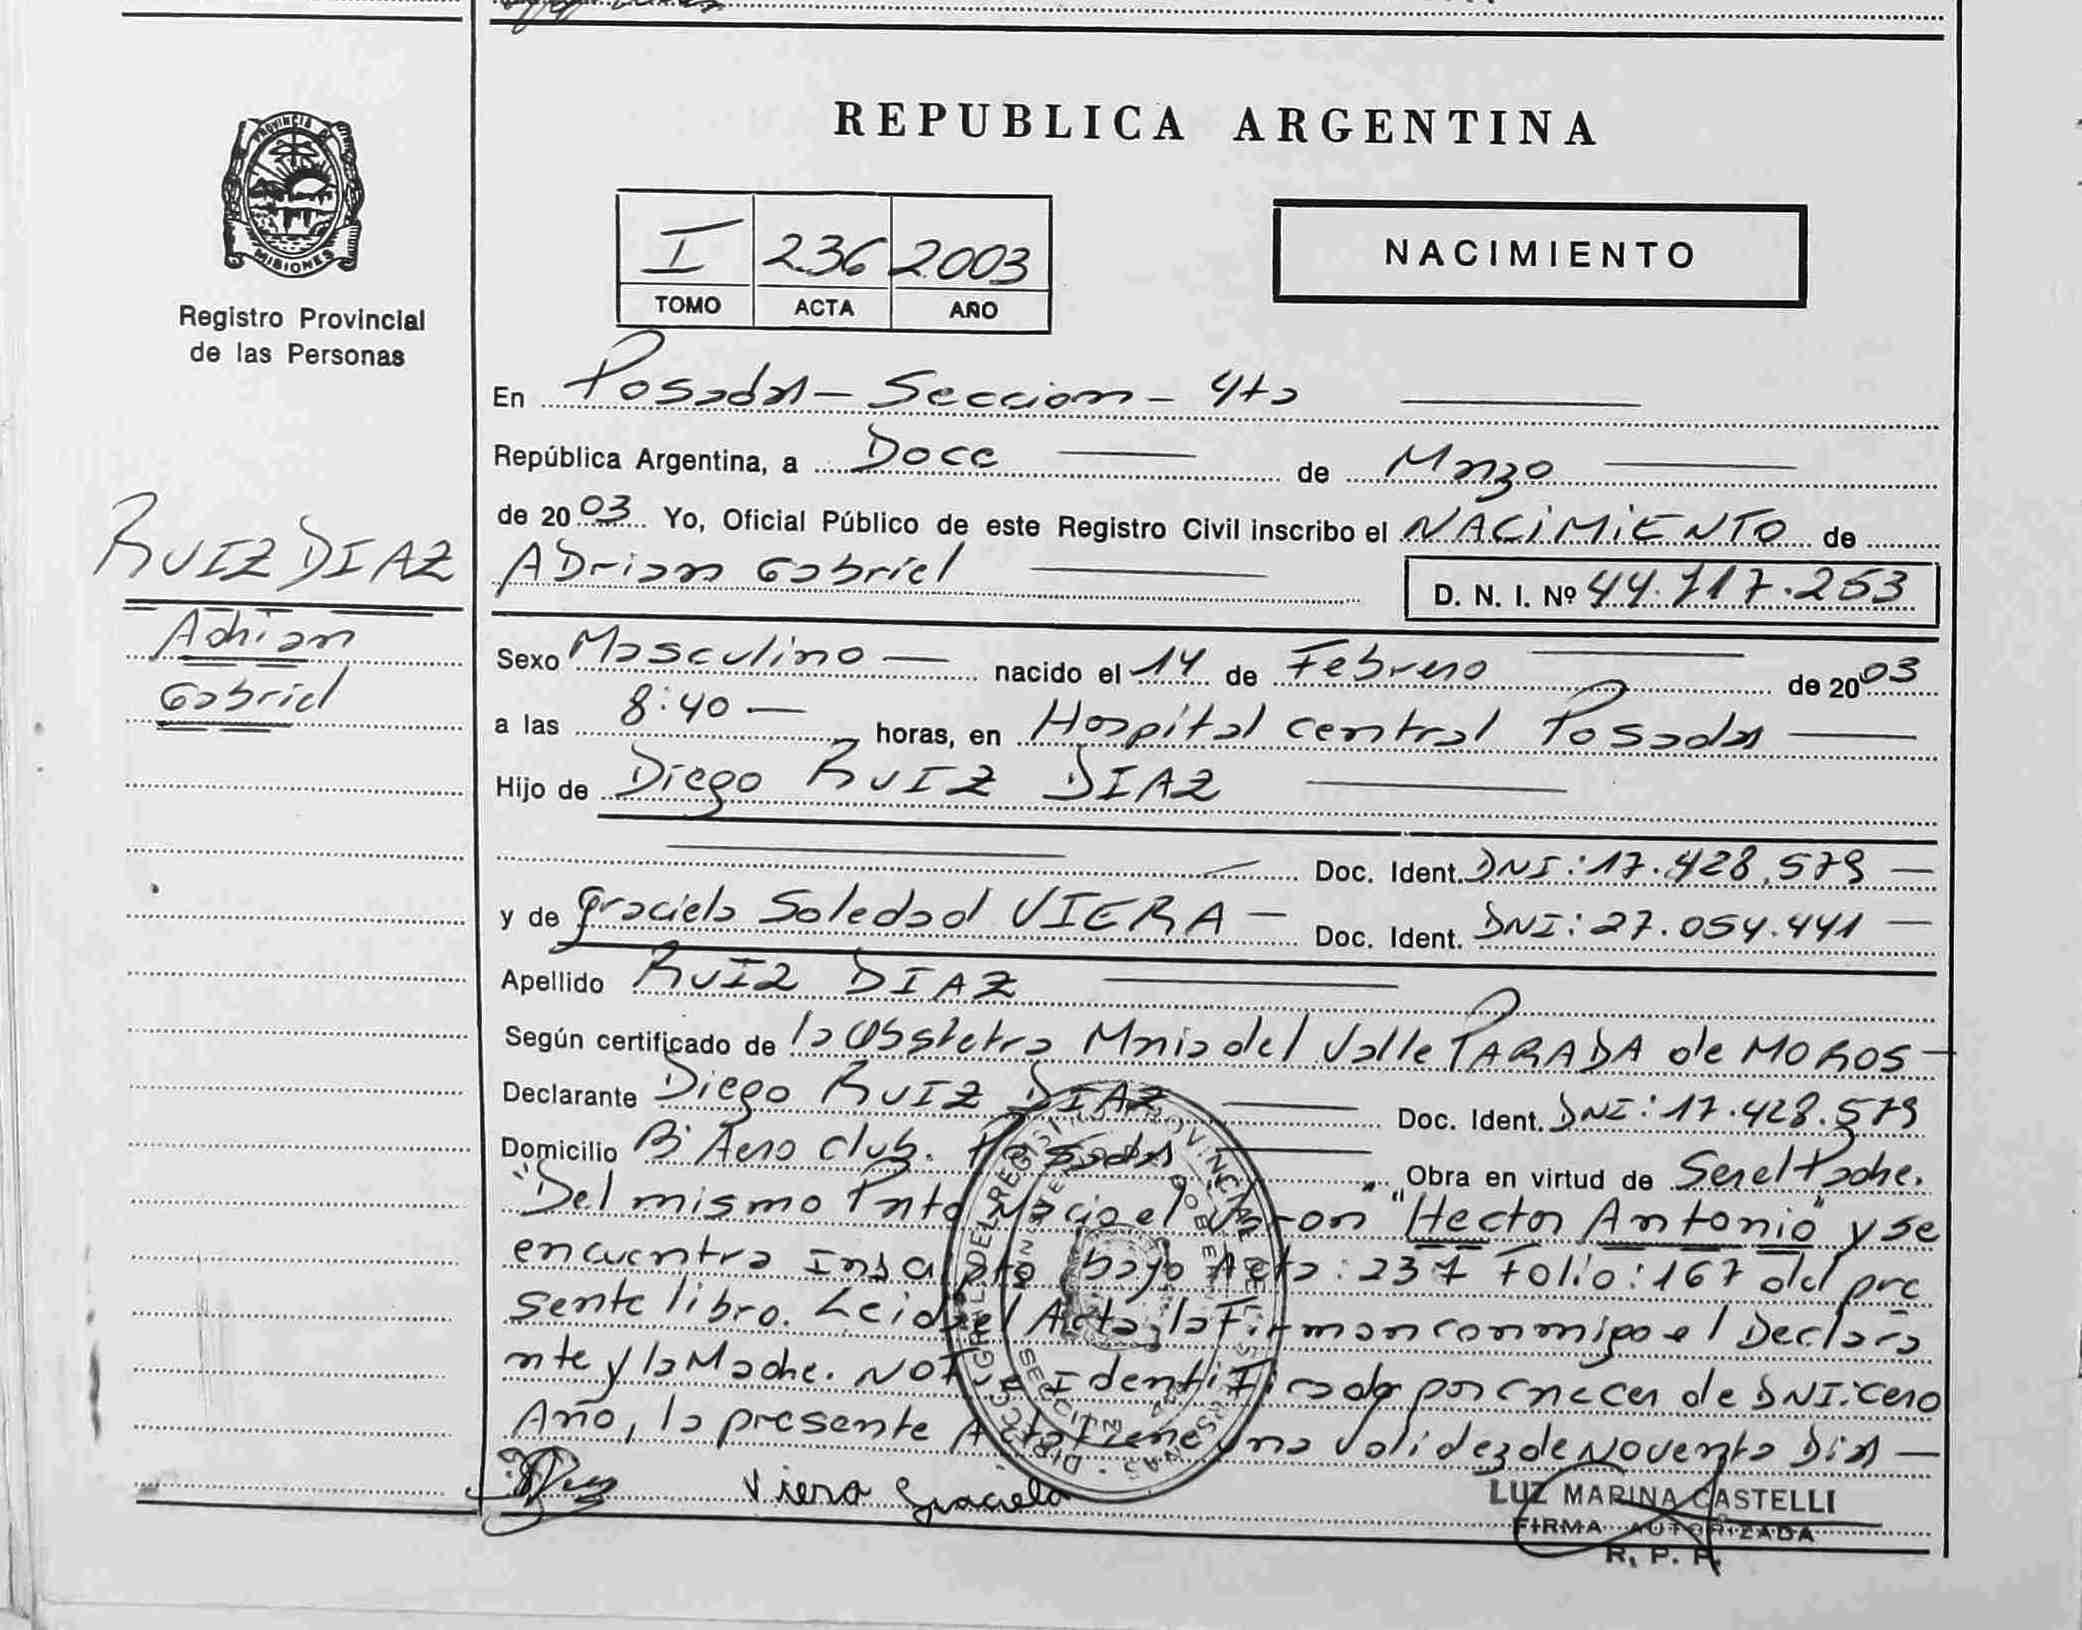 REPUBLICA ARGENTINA
PROVINCIA DE MISIONES
Registro Provincial
de las Personas
I 236 2003
TOMO ACTA AÑO
NACIMIENTO
En Posadas - Seccion - 4ta
República Argentina, a Doce de Marzo
de 2003 Yo, Oficial Público de este Registro Civil inscribo el NACIMIENTO de
ADrian Gabriel D. N. I. Nº 44.717.253
RUIZ DIAZ
Adrian
Gabriel
Sexo Masculino nacido el 14 de Febrero de 2003
a las 8:40 horas, en Hospital central Posadas
Hijo de Diego RUIZ DIAZ
Doc. Ident. DNI: 17.428.579
y de Graciela Soledad VIERA Doc. Ident. DNI: 27.054.441
Apellido RUIZ DIAZ
Según certificado de la Obstetra Maria del Valle PARADA de MOROS
Declarante Diego RUIZ DIAZ Doc. Ident. DNI: 17.428.579
Domicilio Bº Aero Club. Posadas Obra en virtud de Ser el Padre.
"Del mismo Parto Nacio el Varon "Hector Antonio" y se
encuentra Inscripto bajo Acta: 237 Folio: 167 del pre
sente libro. Leida el Acta, la Firman conmigo el Declara
nte y la Madre. NOTA: Identificado por carecer de DNI. cero
Año, la presente Acta tiene una validez de Noventa Dias
Viera Graciela
LUZ MARINA CASTELLI
FIRMA AUTORIZADA
R. P. P.